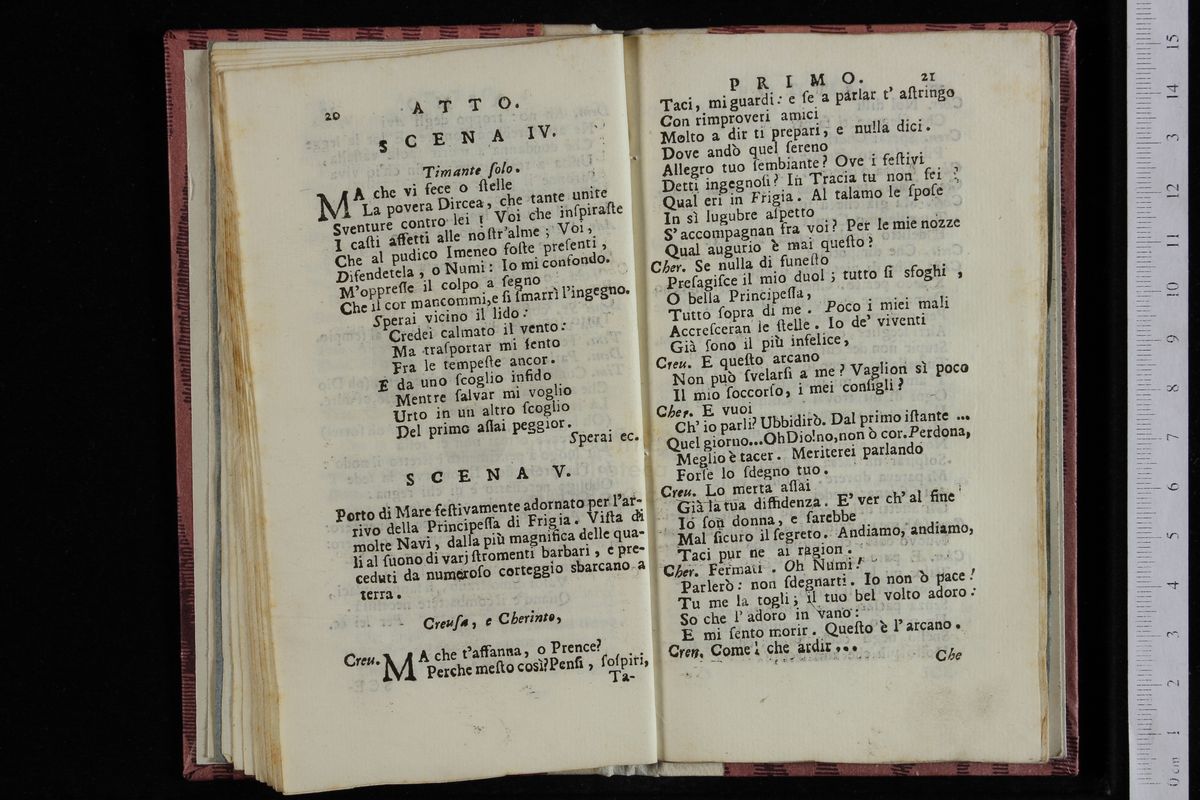 20
ATTO.
SCENA IV.
Timante ſolo.
MA che vi fece o ſtelle
La povera Dircea, che tante unite
Sventure contro lei ! Voi che inſpiraſte
I caſti affetti alle noſtr'alme ; Voi,
Che al pudico Imeneo foſte preſenti,
Difendetela, o Numi: Io mi confondo.
M'oppreſſe il colpo a ſegno
Che il cor mancommi, e ſi ſmarrì l'ingegno.
Sperai vicino il lido:
Credei calmato il vento:
Ma traſportar mi ſento
Fra le tempeſte ancor.
E da uno ſcoglio infido
Mentre ſalvar mi voglio
Urto in un altro ſcoglio
Del primo aſſai peggior.
Sperai ec.
SCENA V.
Porto di Mare feſtivamente adornato per l'ar-
rivo della Principeſſa di Frigia. Viſta di
molte Navi, dalla più magnifica delle qua-
li al ſuono di varj ſtromenti barbari, e pre-
ceduti da numeroſo corteggio sbarcano a
terra.
Creuſa, e Cherinto,
Creu. MA che t'affanna, o Prence?
Perche meſto così? Penſi, ſoſpiri,
Ta-
PRIMO.
21
Taci, mi guardi: e ſe a parlar t' aſtringo
Con rimproveri amici
Molto a dir ti prepari, e nulla dici.
Dove andò quel ſereno
Allegro tuo ſembiante? Ove i feſtivi
Detti ingegnoſi? In Tracia tu non ſei ?
Qual eri in Frigia. Al talamo le ſpoſe
In sì lugubre aſpetto
S'accompagnan fra voi? Per le mie nozze
Qual augurio è mai queſto?
Cher. Se nulla di funeſto
Preſagiſce il mio duol ; tutto ſi sfoghi ,
O bella Principeſſa,
Tutto ſopra di me. Poco i miei mali
Accreſceran le ſtelle. Io de' viventi
Già ſono il più infelice,
Creu. E queſto arcano
Non può ſvelarſi a me? Vaglion sì poco
Il mio ſoccorſo, i mei conſigli?
Cher. E vuoi
Ch' io parli? Ubbidirò. Dal primo iſtante ...
Quel giorno...Oh Dio!no,non ò cor.Perdona,
Meglio è tacer. Meriterei parlando
Forſe lo ſdegno tuo.
Creu. Lo merta aſſai
Già la tua diffidenza. E' ver ch' al fine
Io ſon donna, e ſarebbe
Mal ſicuro il ſegreto. Andiamo, andiamo,
Taci pur ne ai ragion.
Cher. Fermati. Oh Numi!
Parlerò: non ſdegnarti. Io non ò pace!
Tu me la togli; il tuo bel volto adoro:
So che l' adoro in vano:
E mi ſento morir. Queſto è l'arcano.
Creu. Come! che ardir...
Che